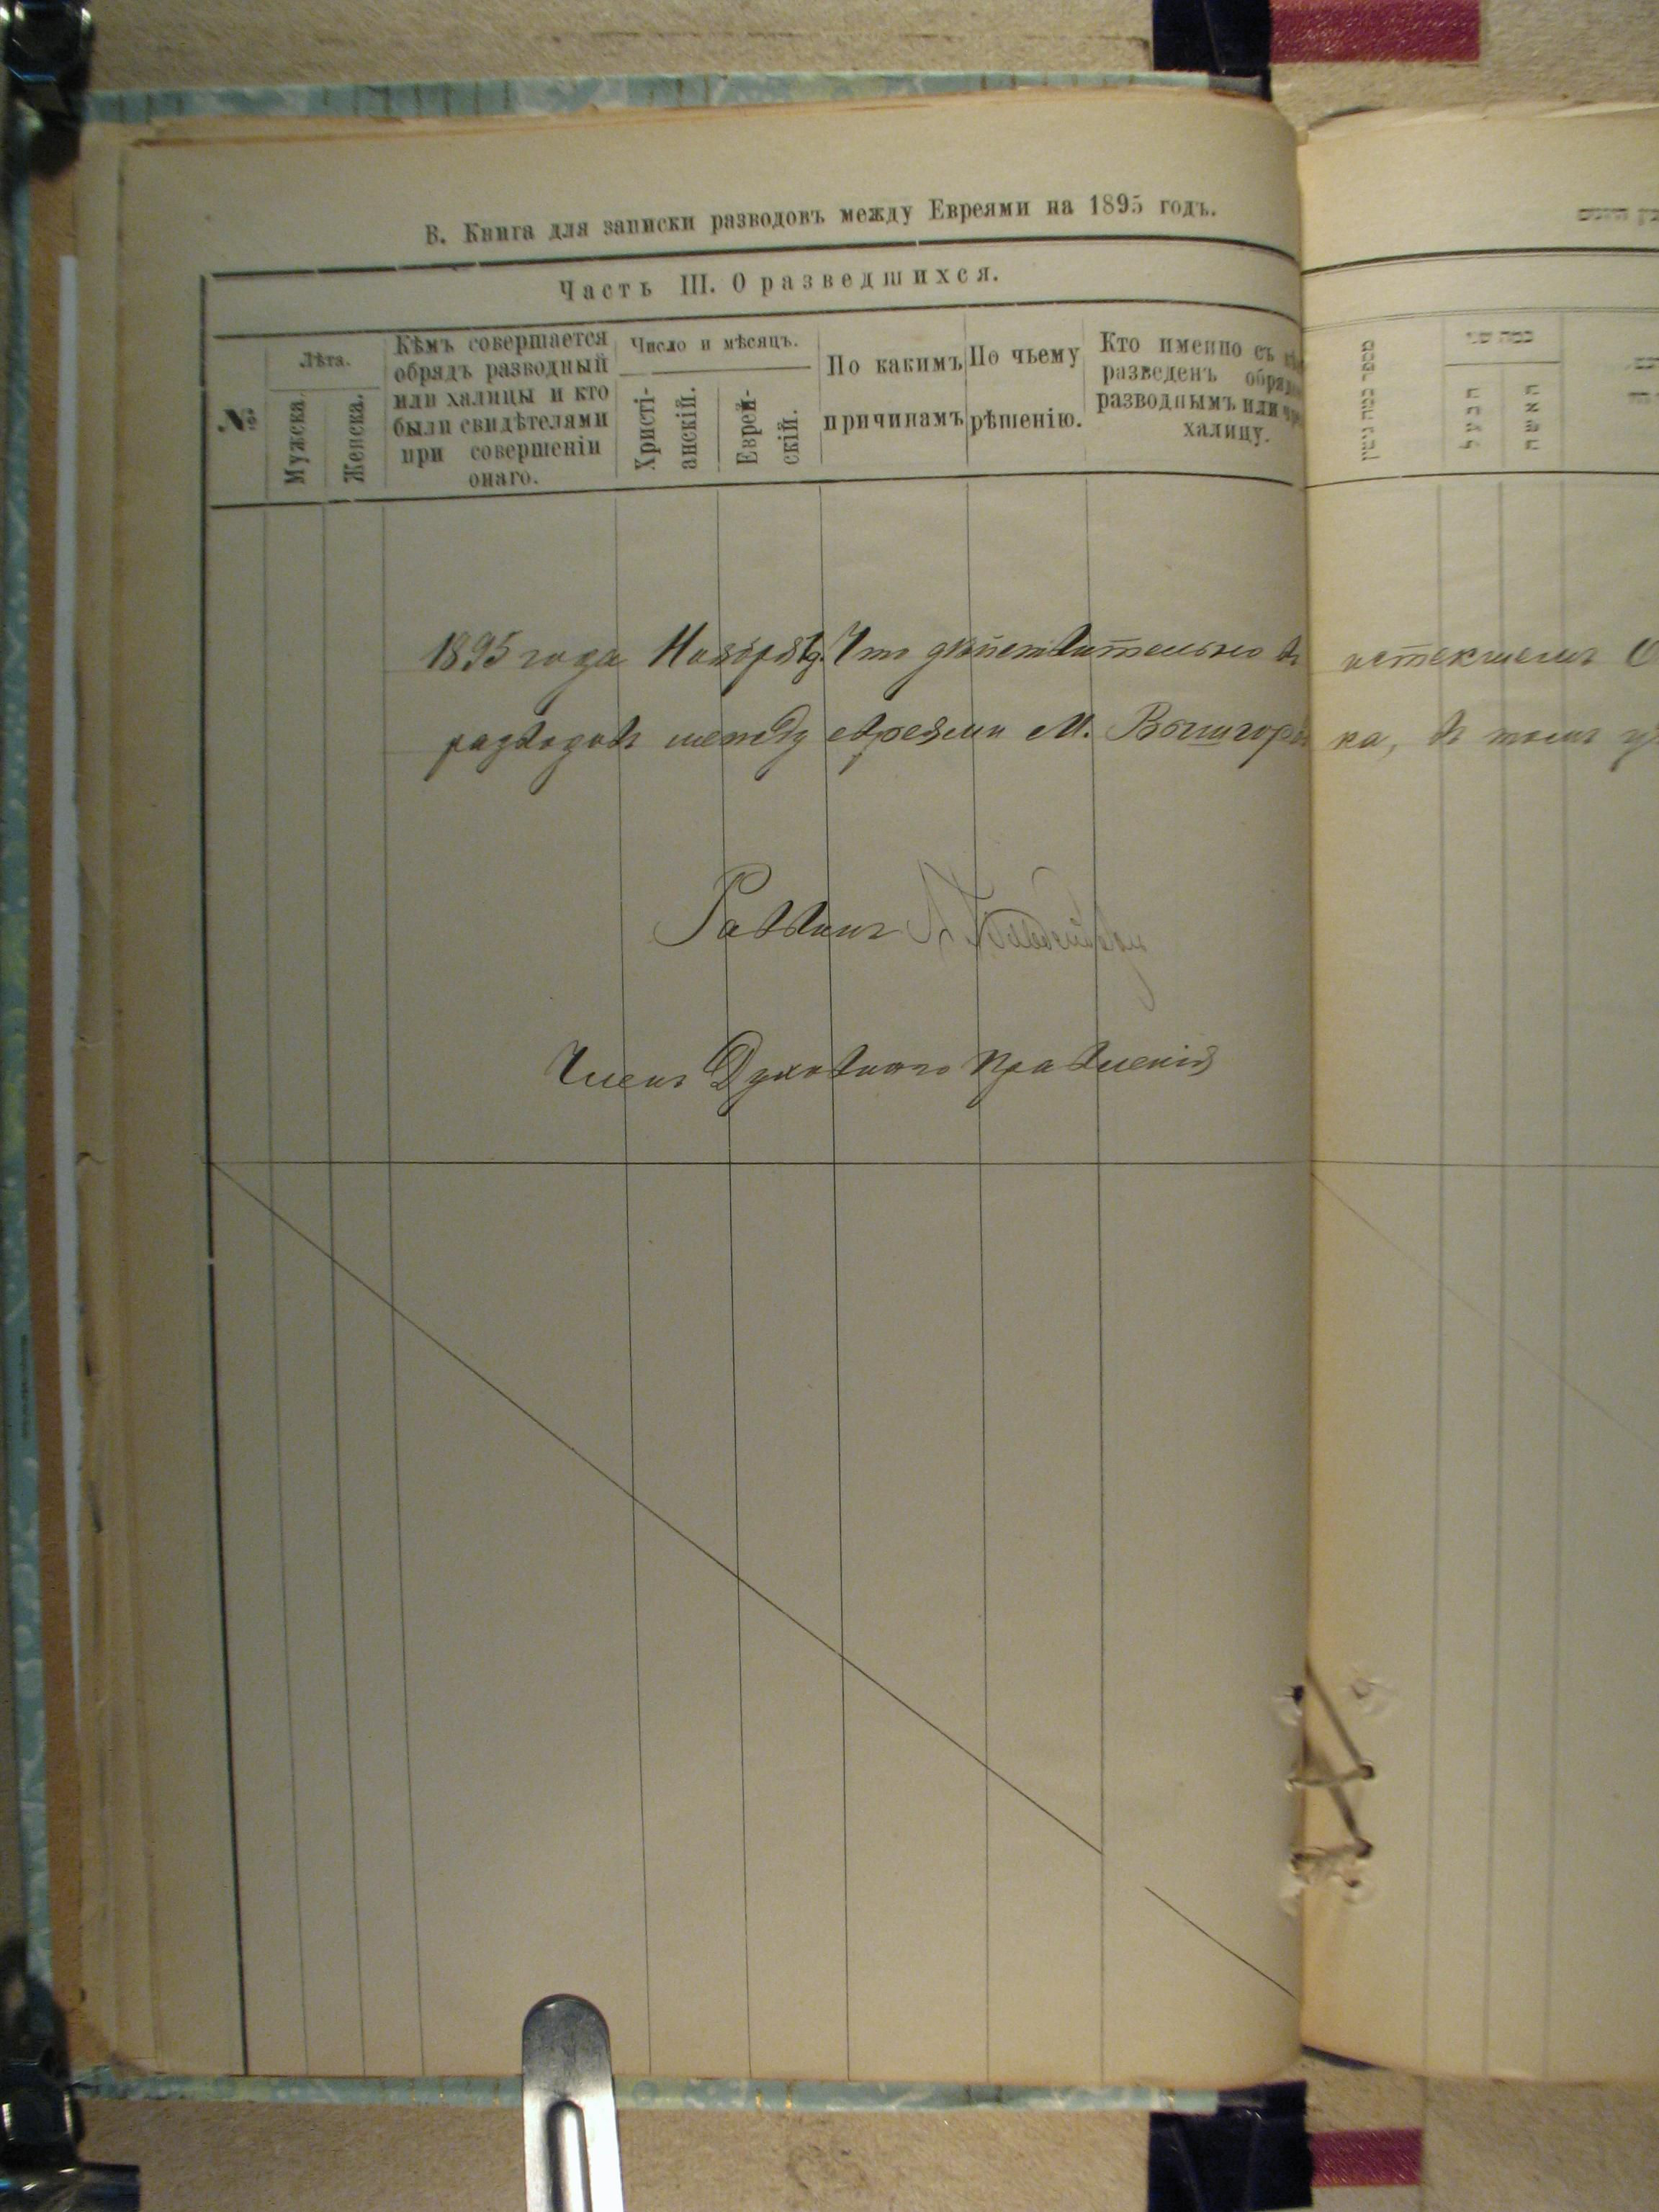 В. Книга для записки разводовъ между Евреями на 1895 годъ.
Часть III. О разведшихся.
№
Лѣта.
Мужска.
Женска.
Кѣмъ совершается
обрядъ разводный
или халицы и кто
были свидѣтелями
при совершеніи
онаго.
Число и мѣсяцъ.
Христі-
анскій.
Еврей-
скій.
По какимъ
причинамъ
По чьему
рѣшенію.
Кто именно съ
разведенъ
разводнымъ или
халицу.
1895 года Ноября Что дѣйствительно въ истекшемъ
разводовъ между евреями М. Вышгородка, въ томъ
Раввинъ
Членъ Духовного Правленія
מספר
כמה שני
הבעל
האשה